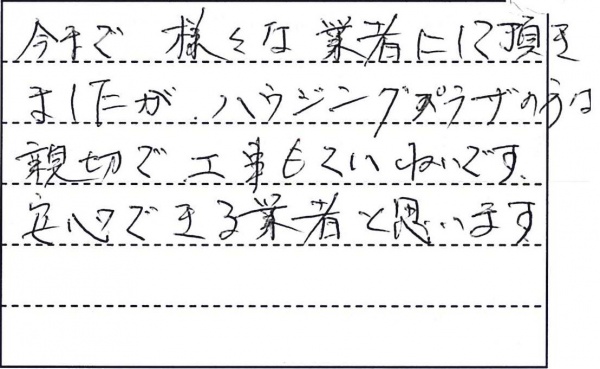 今まで 様々な 業者にして頂き
ましたが、ハウジングプラザの方は
親切で 工事もていねいです。
安心できる業者と思います